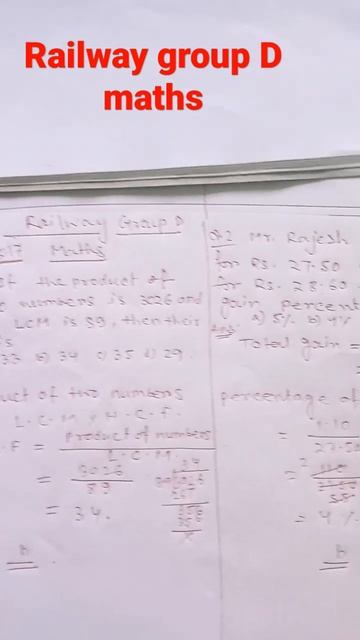 Railway group D
maths
Railway Group D
2017 Maths
If the product of
numbers is 3026 and
LCM is 89, then their
is
33 b) 34 c) 35 d) 29.
uct of two numbers
L.C.M x H.C.F.
.F = Product of numbers
L.C.M.
= 3026
89
= 34.
b
Q.2 Mr. Rajesh
for Rs. 27.50
for Rs. 28.60
gain percent
Ans: a) 5% b) 4%
Total gain =
percentage of
= 1.10
27.50
= 4%
b